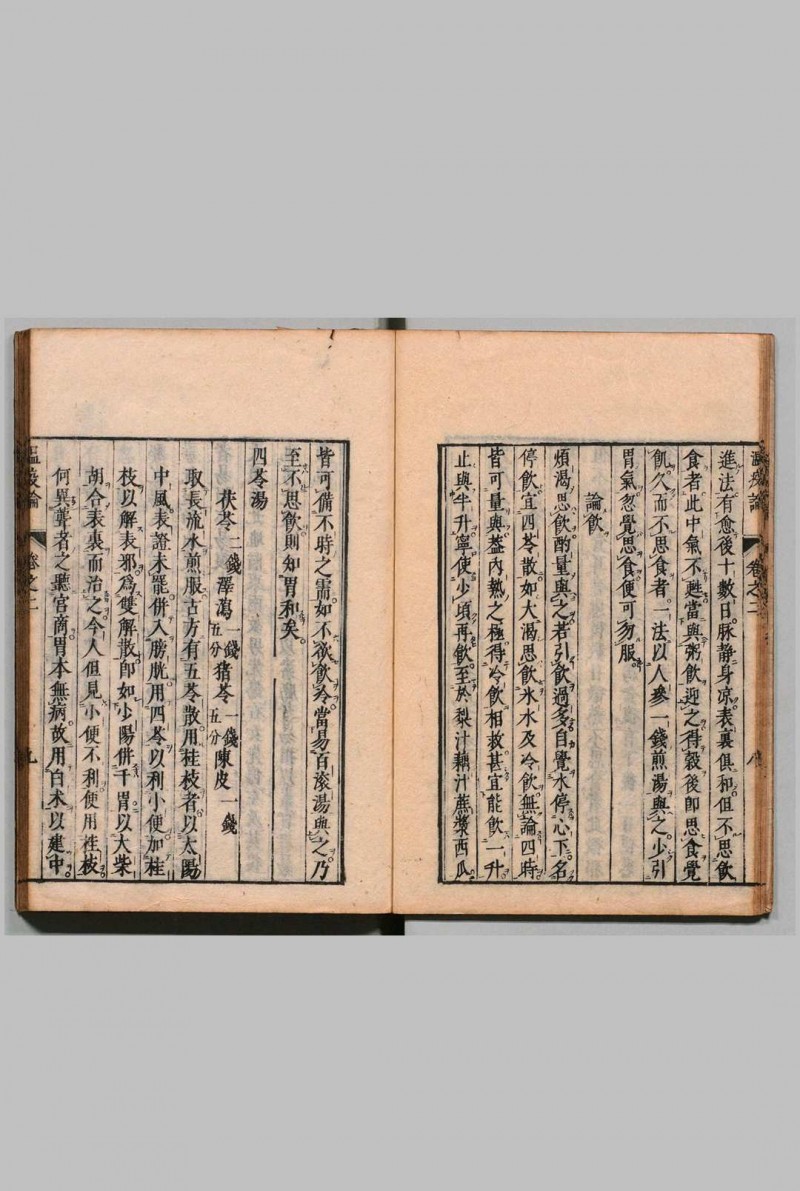 進法有愈後十數日脉靜身凉表裏俱和但不思飲
食者此中氣不甦當與粥飲迎之得穀後即思食覺
飢久而不思食者一法以人參一錢煎湯與之少引
胃氣忽覺思食便可勿服
論飲
煩渴思飲酌量與之若引飲過多自覺水停心下名
停飲宜四苓散如大渴思飲氷水及冷飲無論四時
皆可量與蓋內熱之極得冷飲相救甚宜能飲一升
止與半升寧使少頃再飲至於梨汁藕汁蔗漿西瓜
皆可備不時之需如不欲飲冷當易百滾湯與之乃
至不思飲則知胃和矣
四苓湯
茯苓二錢澤瀉一錢五分猪苓一錢五分陳皮一錢
取長流水煎服古方有五苓散用桂枝者以太陽
中風表證未罷併入膀胱用四苓以利小便加桂
枝以解表邪為雙解散即如少陽併于胃以大柴
胡合表裏而治之今人但見小便不利便用桂枝
何異聾者之聽宮商胃本無病故用白朮以建中
溫疫論 卷之二 九